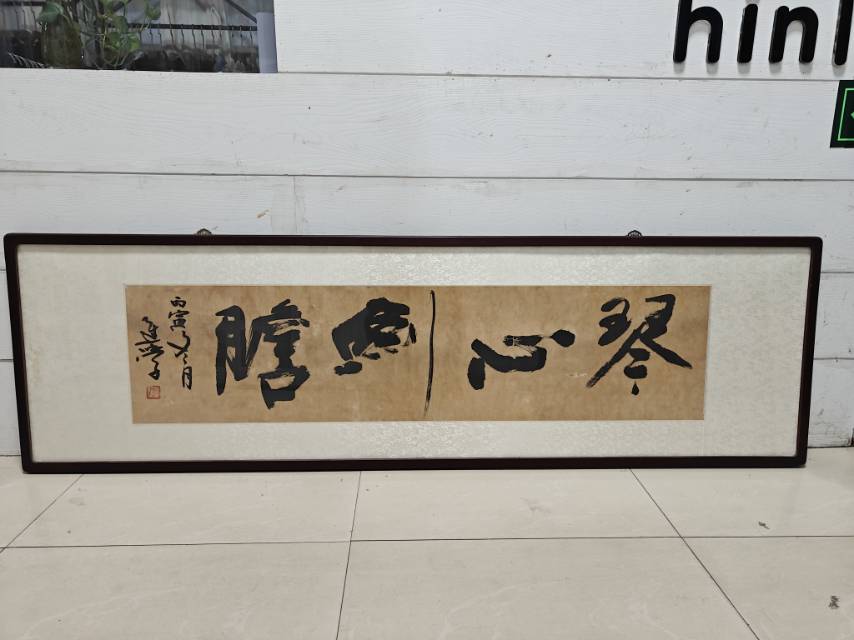 hinl
琴心劍膽
丙寅
月